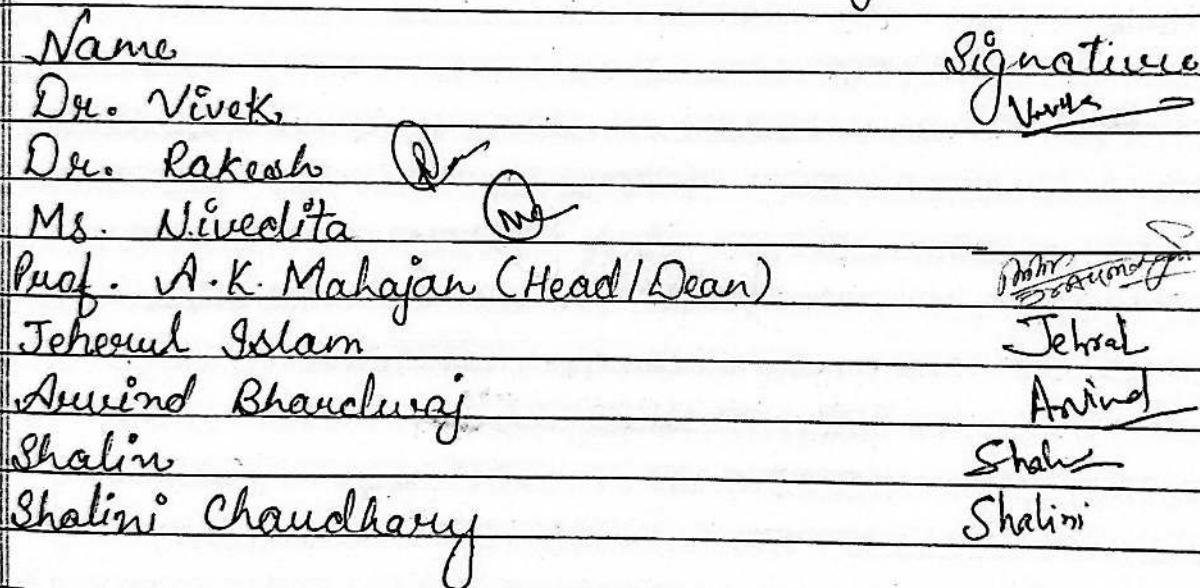 Name Signature
Dr. Vivek
Dr. Rakesh
Ms. Nivedita
Prof. A.K. Mahajan (Head/Dean)
Jeherul Islam Jehral
Arvind Bhardwaj Arvind
Shalin
Shalini Chaudhary Shalini